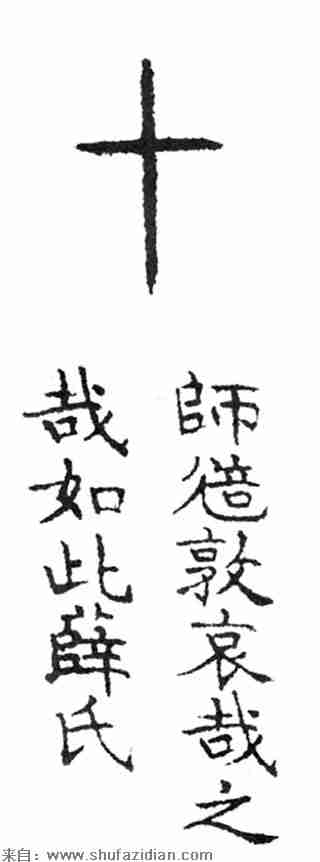 十
師敦哀哉之
哉如此薛氏
来自：www.shufazidian.com